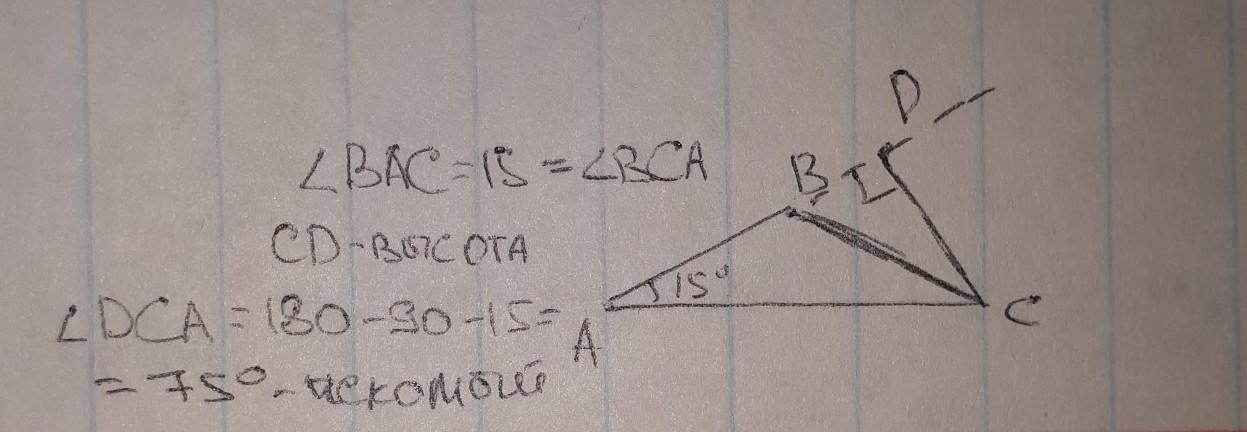 ∠BAC=15=∠BCA
CD-ВЫСОТА
∠DCA=180-90-15=
=75°-искомый
D
B
15°
A
C